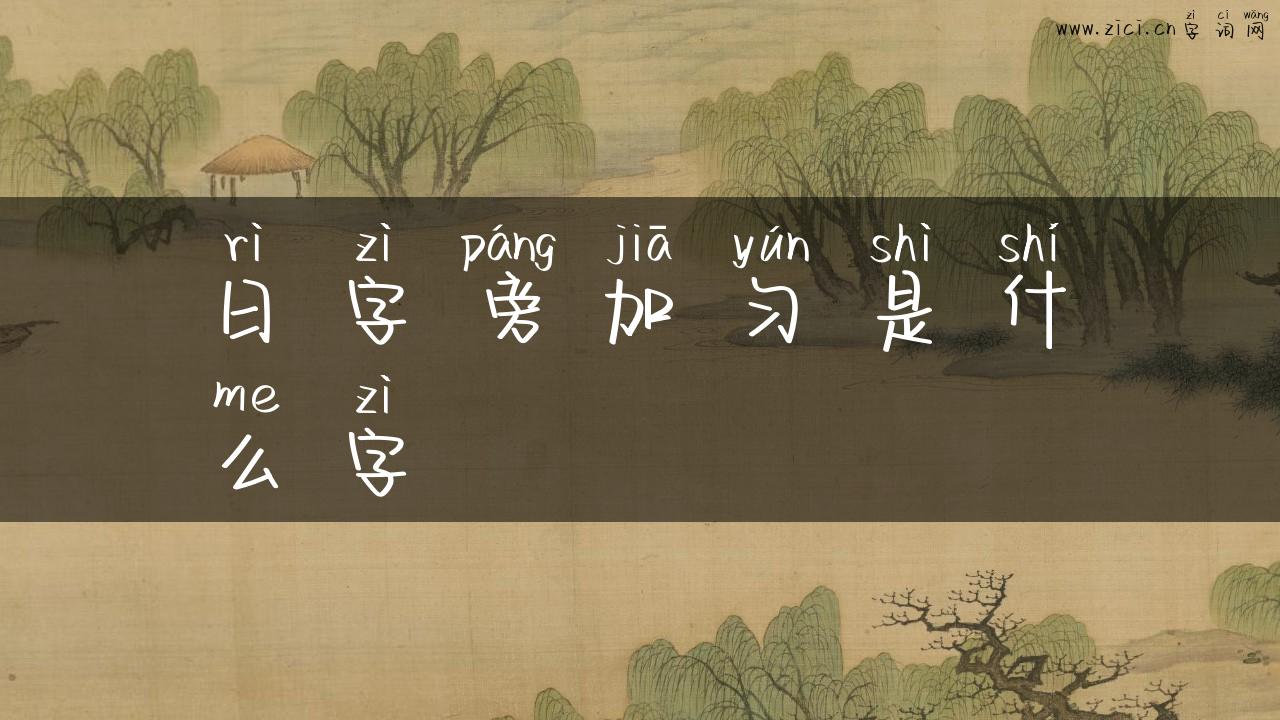 zì cí wǎng
www.zici.cn 字 词 网
rì zì páng jiā yún shì shí
日 字 旁 加 匀 是 什
me zì
么 字